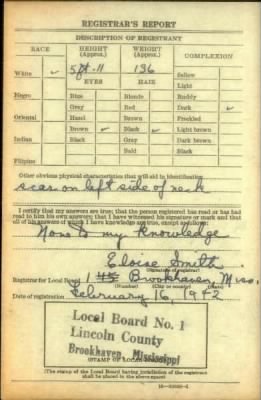 REGISTRAR'S REPORT
DESCRIPTION OF REGISTRANT
RACE HEIGHT (Approx.) WEIGHT (Approx.) COMPLEXION
White ✓ 5 ft. 11 136 Sallow
EYES HAIR Light
Negro Blue Blonde Ruddy
Gray Red Dark ✓
Oriental Hazel Brown Freckled
Brown ✓ Black ✓ Light brown
Indian Black Gray Dark brown
Bald Black
Filipino
Other obvious physical characteristics that will aid in identification
scar on left side of neck
I certify that my answers are true; that the person registered has read or has had
read to him his own answers; that I have witnessed his signature or mark and that
all of his answers of which I have knowledge are true, except as follows:
None to my knowledge
Eloise Smith
(Signature of registrar)
Registrar for Local Board 1 Brookhaven, Miss.
(Number) (City or county) (State)
Date of registration February 16, 1942
Local Board No. 1
Lincoln County
Brookhaven, Mississippi
(STAMP OF LOCAL BOARD)
(The stamp of the Local Board having jurisdiction of the registrant
shall be placed in the above space)